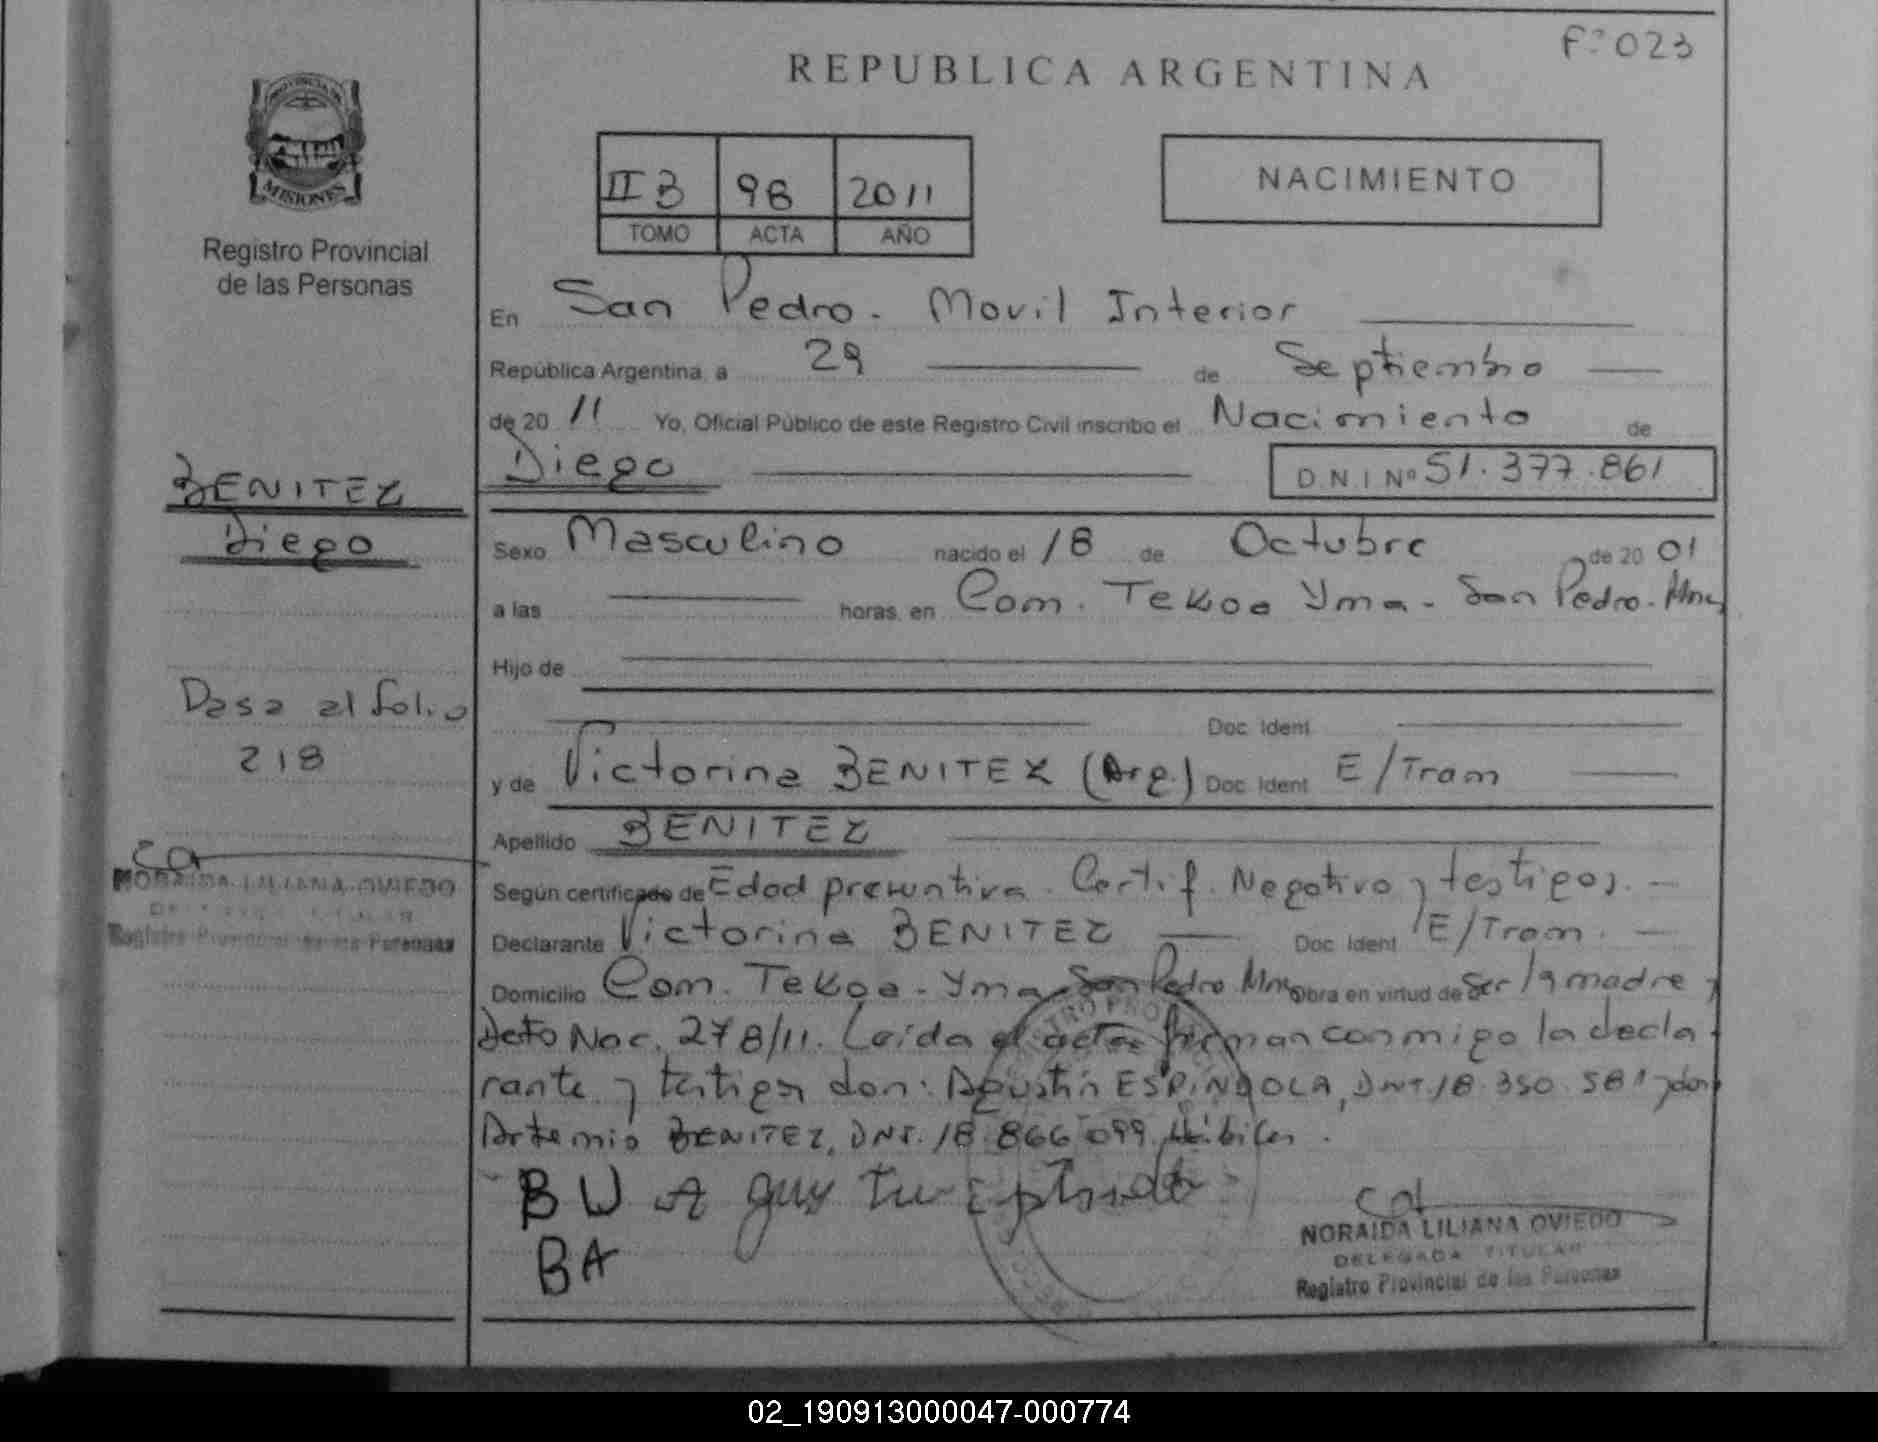 Fº 023
REPUBLICA ARGENTINA
PROVINCIA DE
MISIONES
Registro Provincial
de las Personas
II B 98 2011
TOMO ACTA AÑO
NACIMIENTO
En San Pedro - Movil Interior
República Argentina, a 29 de Septiembre
de 20 11 Yo, Oficial Público de este Registro Civil inscribo el Nacimiento de
Diego D N I Nº 51.377.861
BENITEZ
Diego
Sexo Masculino nacido el 18 de Octubre de 20 01
a las horas, en Com. Tekoa Yma - San Pedro - Mnes
Hijo de
Doc. Ident
y de Victorina BENITEZ (Arg.) Doc. Ident E/Tram
Apellido BENITEZ
Según certificado de Edad presuntiva. Certif. Negativo y testigos.
Declarante Victorina BENITEZ Doc. Ident E/Tram.
Domicilio Com. Tekoa - Yma - San Pedro Mnes Obra en virtud de Ser la madre y
Dcto Nac. 278/11. Leída el acta firman conmigo la decla
rante y testigos don: Agustín ESPINDOLA, DNI. 18.350.581 y don
Artemio BENITEZ, DNI. 18.866.099 Hábiles.
Pasa al folio
218
NORAIDA LILIANA OVIEDO
DELEGADA TITULAR
Registro Provincial de las Personas
B V A
BA
NORAIDA LILIANA OVIEDO
DELEGADA TITULAR
Registro Provincial de las Personas
02_190913000047-000774